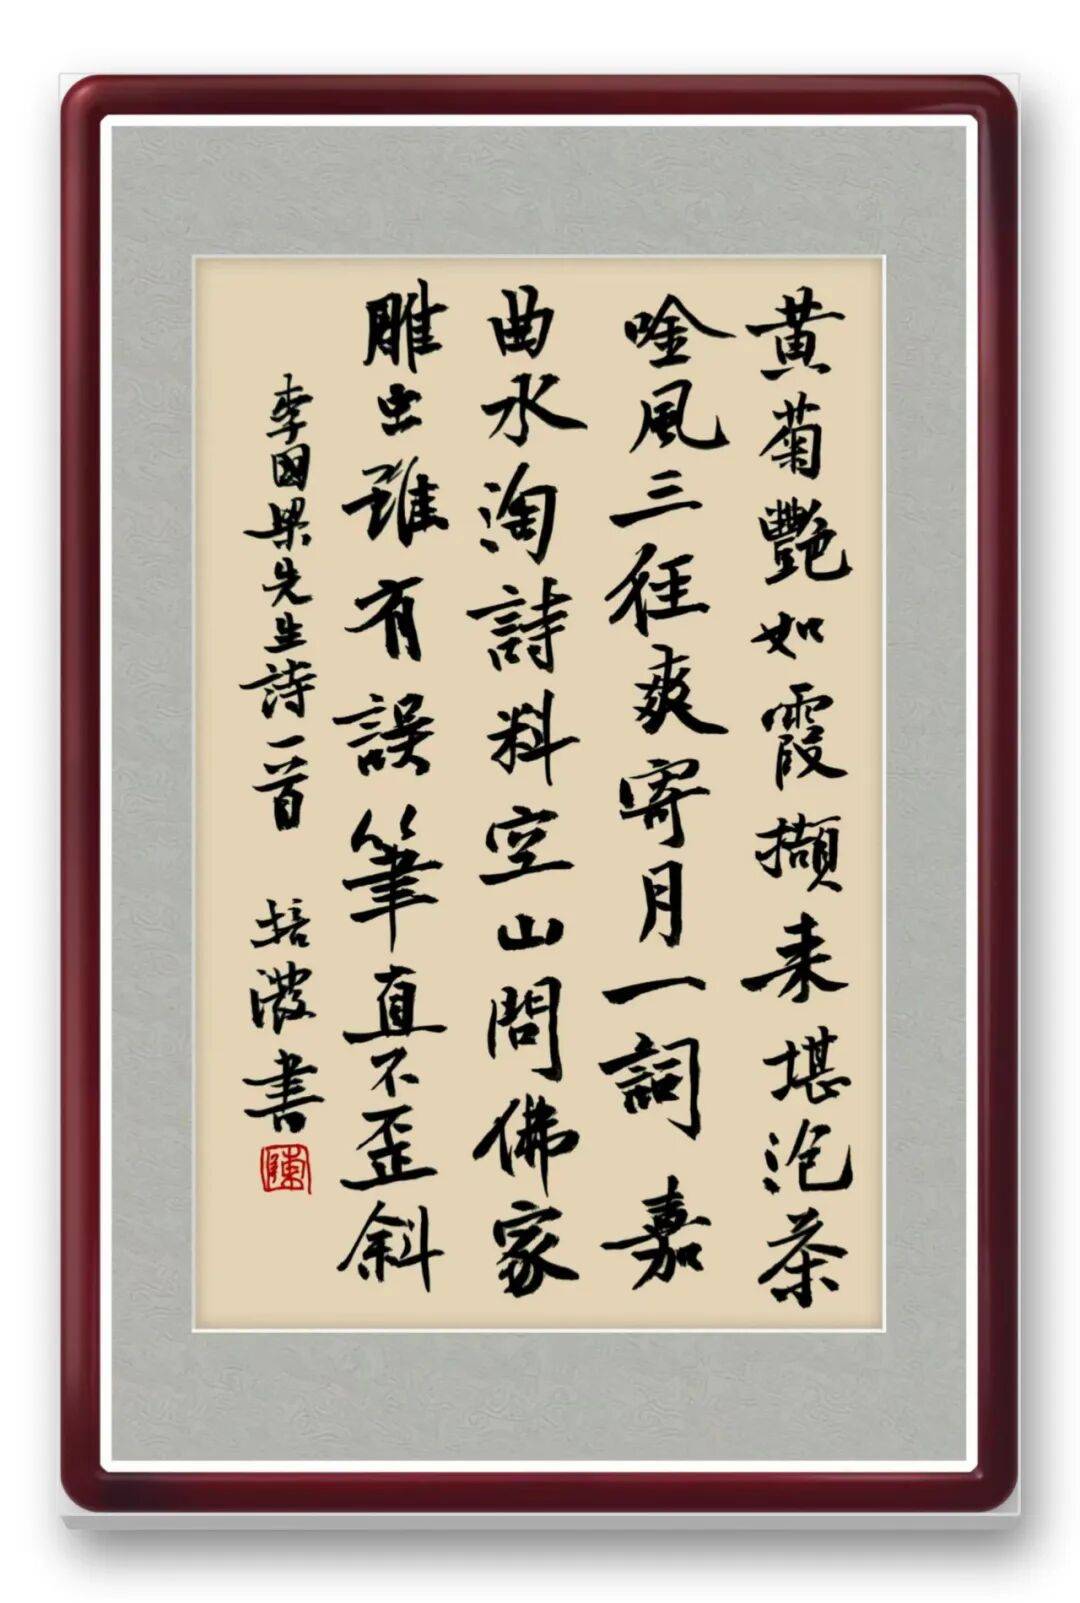 黄菊艷如霞擷来堪泡茶
唫風三徑爽寄月一詞嘉
曲水淘詩料空山問佛家
雕虫雖有誤筆直不歪斜
李國梁先生詩一首 培書
陳